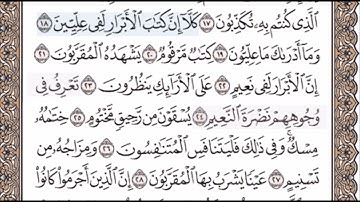 الَّذِي كُنتُم بِهِ تُكَذِّبُونَ ١٧ كَلَّا إِنَّ كِتَٰبَ الْأَبْرَارِ لَفِي عِلِّيِّينَ ١٨
وَمَا أَدْرَىٰكَ مَا عِلِّيُّونَ ١٩ كِتَٰبٌ مَّرْقُومٌ ٢٠ يَشْهَدُهُ الْمُقَرَّبُونَ ٢١
إِنَّ الْأَبْرَارَ لَفِي نَعِيمٍ ٢٢ عَلَى الْأَرَائِكِ يَنظُرُونَ ٢٣ تَعْرِفُ فِي
وُجُوهِهِمْ نَضْرَةَ النَّعِيمِ ٢٤ يُسْقَوْنَ مِن رَّحِيقٍ مَّخْتُومٍ ٢٥ خِتَٰمُهُ
مِسْكٌ وَفِي ذَٰلِكَ فَلْيَتَنَافَسِ الْمُتَنَٰفِسُونَ ٢٦ وَمِزَاجُهُ مِن
تَسْنِيمٍ ٢٧ عَيْنًا يَشْرَبُ بِهَا الْمُقَرَّبُونَ ٢٨ إِنَّ الَّذِينَ أَجْرَمُوا كَانُوا